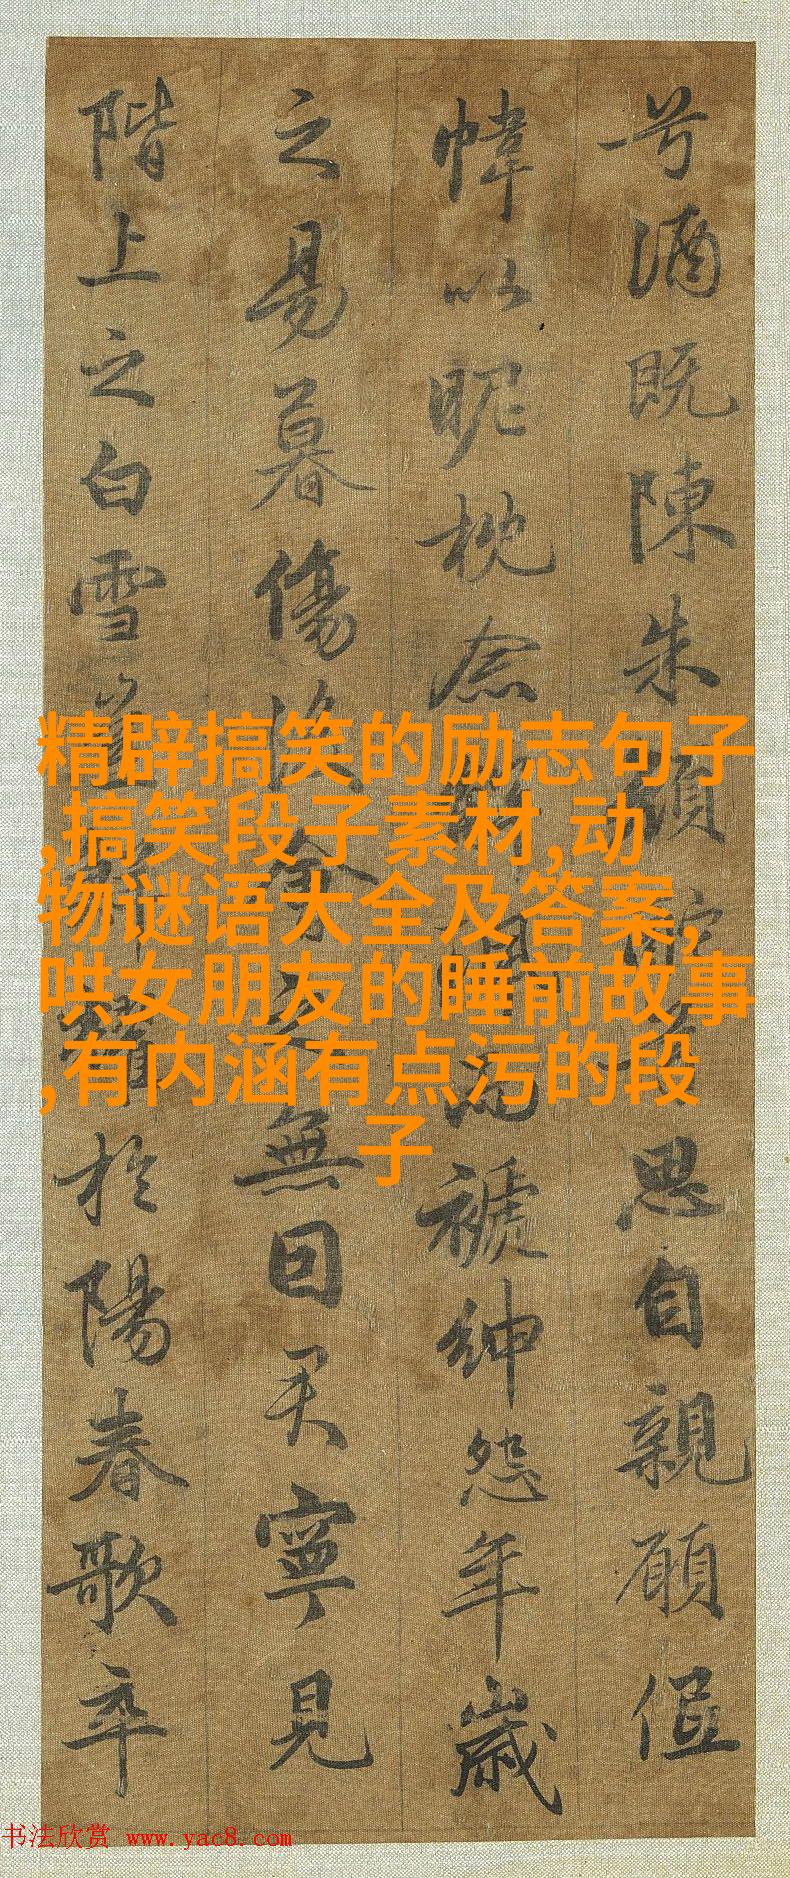 兮酒既陳朱顔酡兮思自親願低
幃以昵枕念而褫紳怨年歲
之易暮傷後之無因君寧見
階上之白雪豈耀於陽春歌卒
精辟搞笑的励志句子
,搞笑段子素材,动
物谜语大全及答案,
哄女朋友的睡前故事
,有内涵有点污的段
子
书法欣赏 www.yac8.com